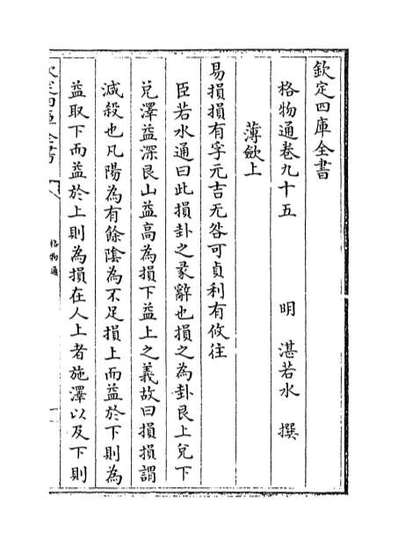 欽定四庫全書
格物通卷九十五
明 湛若水 撰
薄斂上
易損損有孚元吉无咎可貞利有攸往
臣若水通曰此損卦之彖辭也損之為卦艮上兌下
兌澤益深艮山益高為損下益上之義故曰損損謂
減殺也凡陽為有餘陰為不足損上而益於下則為
益取下而益於上則為損在人上者施澤以及下則
欽定四庫全書
格物通
一